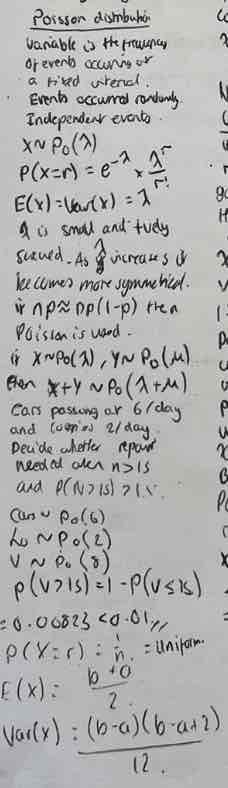 Poisson distribution
Variable is the frequency
of events occuring over
a fixed interval.
Events occurred randomly.
Independent events.
X~Po(λ)
P(X=r) = e^-λ × λ^r/r!
E(X)=Var(X)=λ
λ is small and
skewed. As λ increases it
becomes more symmetrical.
if np≈np(1-p) then
Poisson is used.
if X~Po(λ), Y~Po(μ)
then X+Y~Po(λ+μ)
Cars passing at 6/day
and lorries 2/day.
Decide whether repair
needed when n>15
and P(N>15)>1%.
Car~Po(6)
Lo~Po(2)
V~Po(8)
P(V>15)=1-P(V≤15)
=0.00823<0.01//
P(X=r)=1/n. = Uniform.
E(X)= b+a/2.
Var(X)=(b-a)(b-a+2)/12.